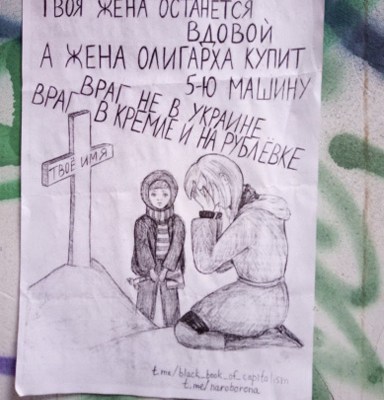 ТВОЯ ЖЕНА ОСТАНЕТСЯ
ВДОВОЙ
А ЖЕНА ОЛИГАРХА КУПИТ
5-Ю МАШИНУ
ВРАГ НЕ В УКРАИНЕ
ВРАГ В КРЕМЛЕ И НА РУБЛЁВКЕ
ТВОЁ ИМЯ
t.me/black_book_of_capitalism
t.me/naroborona